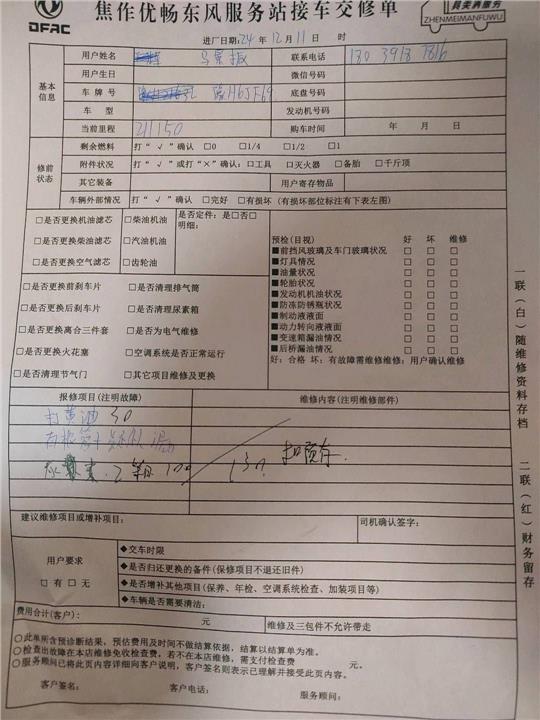 DFAC
焦作优畅东风服务站接车交修单
真美满服务
ZHENMEIMANFUWU
进厂日期:24年12月11日 时
基本信息
用户姓名 联系电话
用户生日 微信号码
车牌号 底盘号码
车型 发动机号码
当前里程 211150 购车时间 年 月 日
修前状态
剩余燃料 打“√”确认 □0 □1/4 □1/2 □1
附件状况 打“√”或打“×”确认:□工具 □灭火器 □备胎 □千斤顶
其它装备 用户寄存物品
车辆外部情况 打“√”确认 □完好 □有损坏(有损坏部位标注有下表左图)
□是否更换机油滤芯 □柴油机油 是否定件:是□否□
明细:
□是否更换柴油滤芯 □汽油机油
□是否更换空气滤芯 □齿轮油
□是否更换前刹车片 □是否清理排气筒
□是否更换后刹车片 □是否清理尿素箱
□是否更换离合三件套 □是否为电气维修
□是否更换火花塞 □空调系统是否正常运行
□是否清理节气门 □其它项目维修及更换
预检(目视) 好 坏 维修
■前挡风玻璃及车门玻璃状况 □ □ □
■灯具情况 □ □ □
■油量状况 □ □ □
■轮胎状况 □ □ □
■发动机机油状况 □ □ □
■防冻防锈瓶状况 □ □ □
■制动液液面 □ □ □
■动力转向液液面 □ □ □
■变速箱漏油情况 □ □ □
■后桥漏油情况 □ □ □
好:合格 坏:有故障需维修维修:用户确认维修
报修项目(注明故障) 维修内容(注明维修部件)
打黄油 30
100
130 扣预存.
建议维修项目或增补项目: 司机确认签字:
用户要求
□有 □无
◆交车时限
◆是否归还更换的备件(保修项目不退还旧件)
◆是否增补其他项目(保养、年检、空调系统检查、加装项目等)
◆车辆是否需要清洁:
费用合计(客户): 元 维修及三包件不允许带走
○此单所含预诊断结果,预估费用及时间不做结算依据,结算以结算单为准。
○检查出故障在本店维修免收检查费,若不在本店维修,需支付检查费 元。
○服务顾问已将此页内容详细向客户说明,客户签名则表示已理解并接受此页内容。
客户签名: 客户电话: 服务顾问:
一联(白)随维修资料存档
二联(红)财务留存